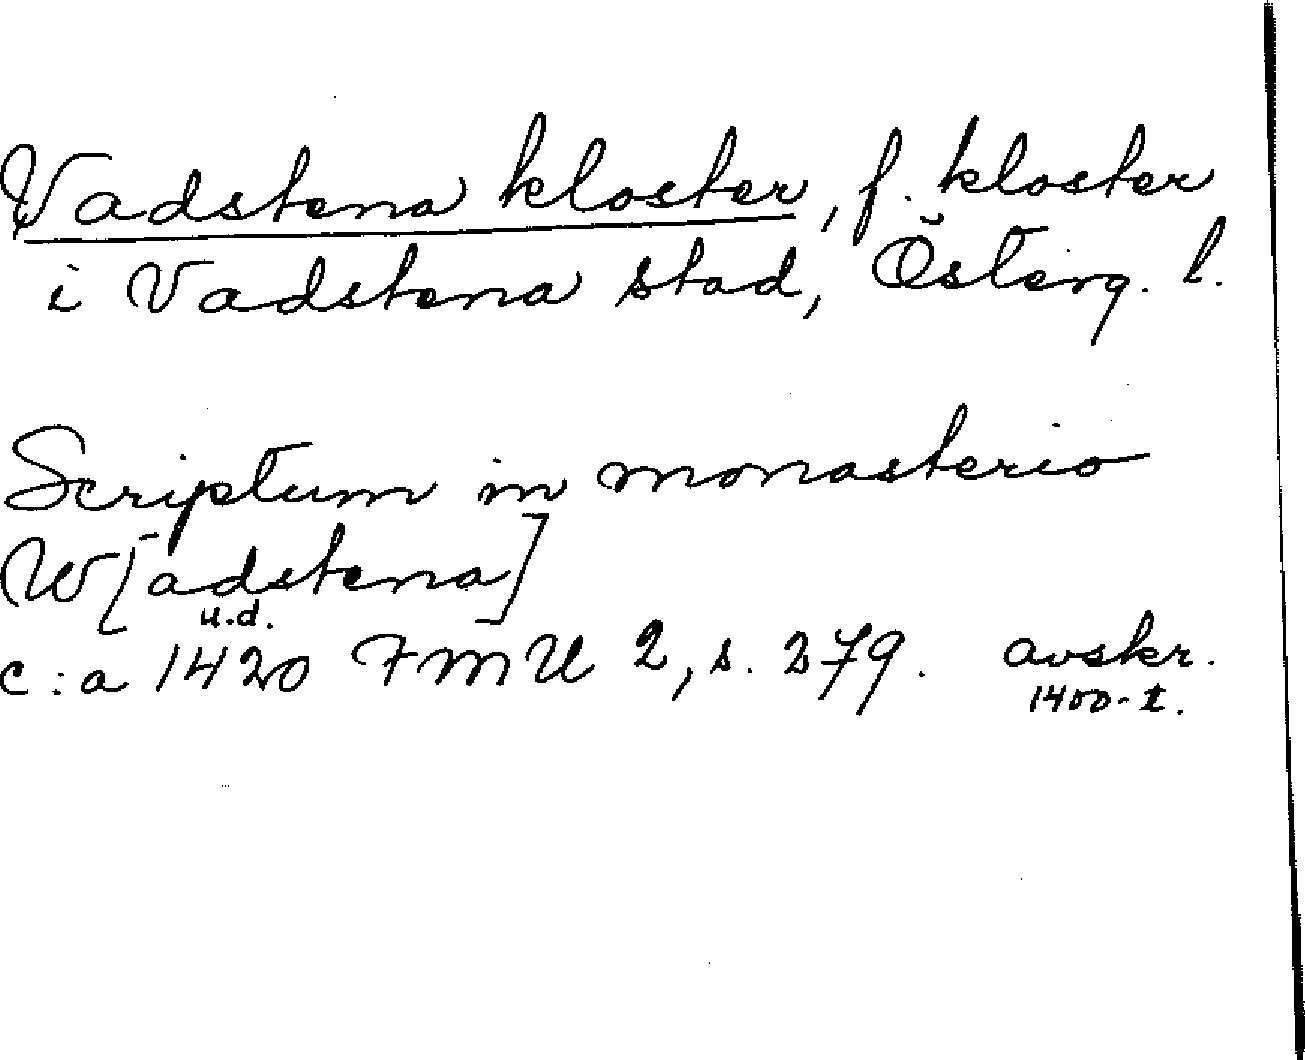 Vadstena kloster, f. kloster
i Vadstena stad, Österg. l.
Scriptum in monasterio
W[adstena]
u.d.
c:a 1420 FMU 2, s. 279. avskr.
1400-t.